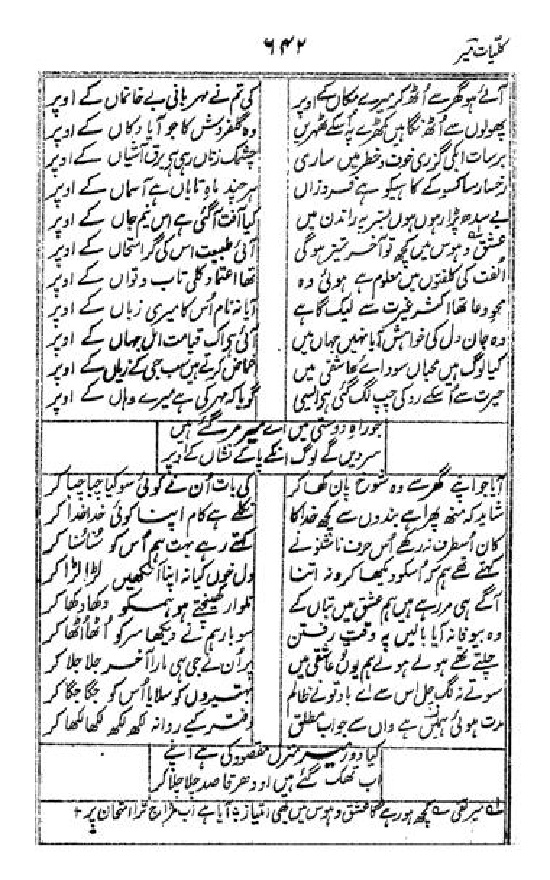 کلیات میر
۶۴۲
آئے ہو گھر سے اُٹھ کر میرے مکاں کے اوپر
کی تم نے مہربانی بے خانماں کے اوپر
پھولوں سے اُٹھ نگاہیں مکھڑے پہ اُسکے ٹھہریں
وہ گلفروش کا جو آیا دکاں کے اوپر
برسات ابکی گزری خوف و خطر میں ساری
چشمک زناں رہی ہے برق آشیاں کے اوپر
رخسار سا کسو کے کاہیکو ہے فروزاں
ہر چند ماہ تاباں ہے آسماں کے اوپر
بے سدھ پڑا رہوں ہوں بستر پہ رات دن میں
کیا آفت آگئی ہے اس نیم جاں کے اوپر
عشق و ہوس میں کچھ تو آخر تمیز ہوگی
آئی طبیعت اس کی گر امتحاں کے اوپر
اُلفت کی کلفتوں میں معلوم ہے ہوئی وہ
تھا اعتماد کلی تاب و تواں کے اوپر
محو دعا تھا اکثر غیرت سے لیک گاہے
آیا نہ نام اُس کا میری زباں کے اوپر
وہ جان دل کی خواہش آیا نہیں جہاں میں
آئی ہے اک قیامت اہل جہاں کے اوپر
کیا لوگ ہیں محباں سوداے عاشقی میں
اغماض کرتے ہیں سب جی کے زیاں کے اوپر
حیرت سے اُسکے رو کی چپ لگ گئی ہے ایسی
گویا کہ مہر کی ہے میرے دہاں کے اوپر
جو راہ دوستی میں اے میر مر گئے ہیں
سر دیں گے لوگ انکے پا کے نشاں کے اوپر
آیا جو اپنے گھر سے وہ شوخ پان کھا کر
کی بات اُن نے کوئی سو کیا چبا چبا کر
شاید کہ منھ پھرا ہے بندوں سے کچھ خدا کا
نکلے ہے کام اپنا کوئی خدا خدا کر
کان اُسطرف نہ رکھے اُس حرف ناشنو نے
کہتے رہے بہت ہم اُس کو سُنا سُنا کر
کہتے تھے ہم کہ اُسکو دیکھا کرو نہ اتنا
دل خوں کیا نہ اپنا آنکھیں لڑا لڑا کر
آگے ہی مر رہے ہیں ہم عشق میں بتاں کے
تلوار کھینچتے ہو ہمکو دکھا دکھا کر
وہ بے وفا نہ آیا بالیں پہ وقت رفتن
سو بار ہم نے دیکھا سر کو اُٹھا اُٹھا کر
جلتے تھے ہولے ہولے ہم یوں عاشقی میں
پر اُن نے جی ہی مارا آخر جلا جلا کر
سوتے نہ لگ چل اس سے اے باد تونے ظالم
بہتیروں کو سلایا اُس کو جگا جگا کر
مدت ہوئی ہمیں ہے واں سے جواب مطلق
دفتر کیے روانہ لکھ لکھ لکھا لکھا کر
کیا دور میر منزل مقصود کی ہے اپنے
اب تھک گئے ہیں اودھر قاصد چلا چلا کر
میر تقی ؎ کچھ ہو رہے گا عشق و ہوس میں بھی امتیاز ؛ آیا ہے اب مزاج ترا امتحان پر +